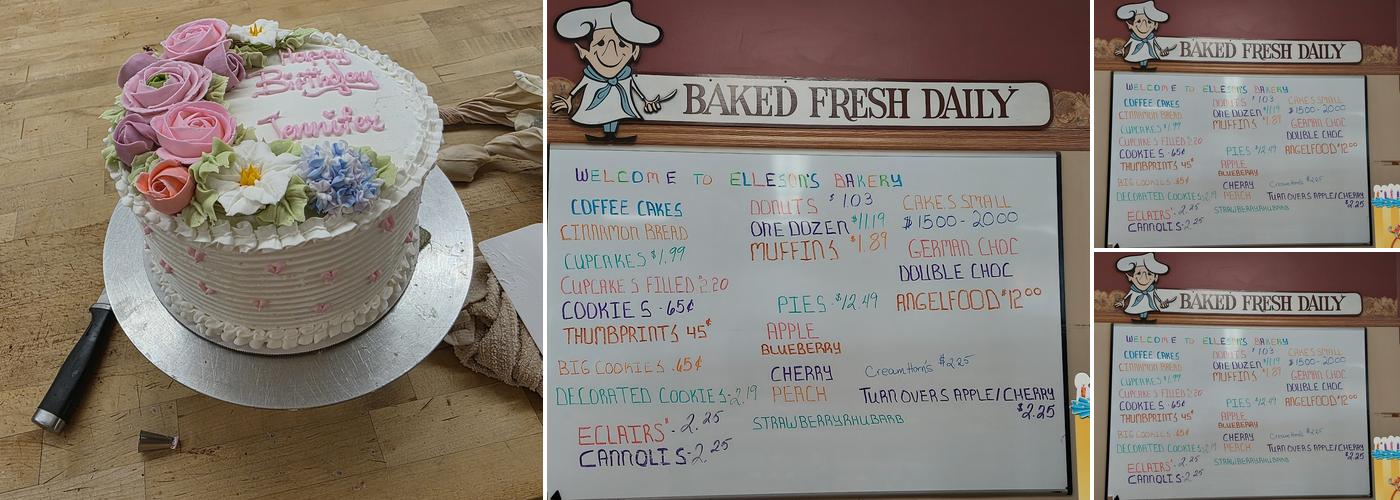 Happy
Birthday
Jennifer
BAKED FRESH DAILY
WELCOME TO ELLESON'S BAKERY
COFFEE CAKES
CINNAMON BREAD
CUPCAKES $1.99
CUPCAKES FILLED 2.20
COOKIES .65¢
THUMBPRINTS 45¢
BIG COOKIES .65¢
DECORATED COOKIES 2.19
ECLAIRS' 2.25
CANNOLIS 2.25
DONUTS $1.03
ONE DOZEN $11.19
MUFFINS $1.89
PIES $12.49
APPLE
BLUEBERRY
CHERRY
PEACH
STRAWBERRYRHUBARB
CAKES SMALL
$1500-2000
GERMAN CHOC
DOUBLE CHOC
ANGELFOOD $12.00
CreamHorn's $2.25
TURNOVERS APPLE/CHERRY
$2.25
BAKED FRESH DAILY
WELCOME TO ELLESON'S BAKERY
COFFEE CAKES
CINNAMON BREAD
CUPCAKES $1.99
CUPCAKES FILLED 2.20
COOKIES .65¢
THUMBPRINTS 45¢
BIG COOKIES .65¢
DECORATED COOKIES 2.19
ECLAIRS' 2.25
CANNOLIS 2.25
DONUTS $1.03
ONE DOZEN $11.19
MUFFINS $1.89
PIES $12.49
APPLE
BLUEBERRY
CHERRY
PEACH
STRAWBERRYRHUBARB
CAKES SMALL
$1500-2000
GERMAN CHOC
DOUBLE CHOC
ANGELFOOD $12.00
CreamHorn's $2.25
TURNOVERS APPLE/CHERRY
$2.25
BAKED FRESH DAILY
WELCOME TO ELLESON'S BAKERY
COFFEE CAKES
CINNAMON BREAD
CUPCAKES $1.99
CUPCAKES FILLED 2.20
COOKIES .65¢
THUMBPRINTS 45¢
BIG COOKIES .65¢
DECORATED COOKIES 2.19
ECLAIRS' 2.25
CANNOLIS 2.25
DONUTS $1.03
ONE DOZEN $11.19
MUFFINS $1.89
PIES $12.49
APPLE
BLUEBERRY
CHERRY
PEACH
STRAWBERRYRHUBARB
CAKES SMALL
$1500-2000
GERMAN CHOC
DOUBLE CHOC
ANGELFOOD $12.00
CreamHorn's $2.25
TURNOVERS APPLE/CHERRY
$2.25